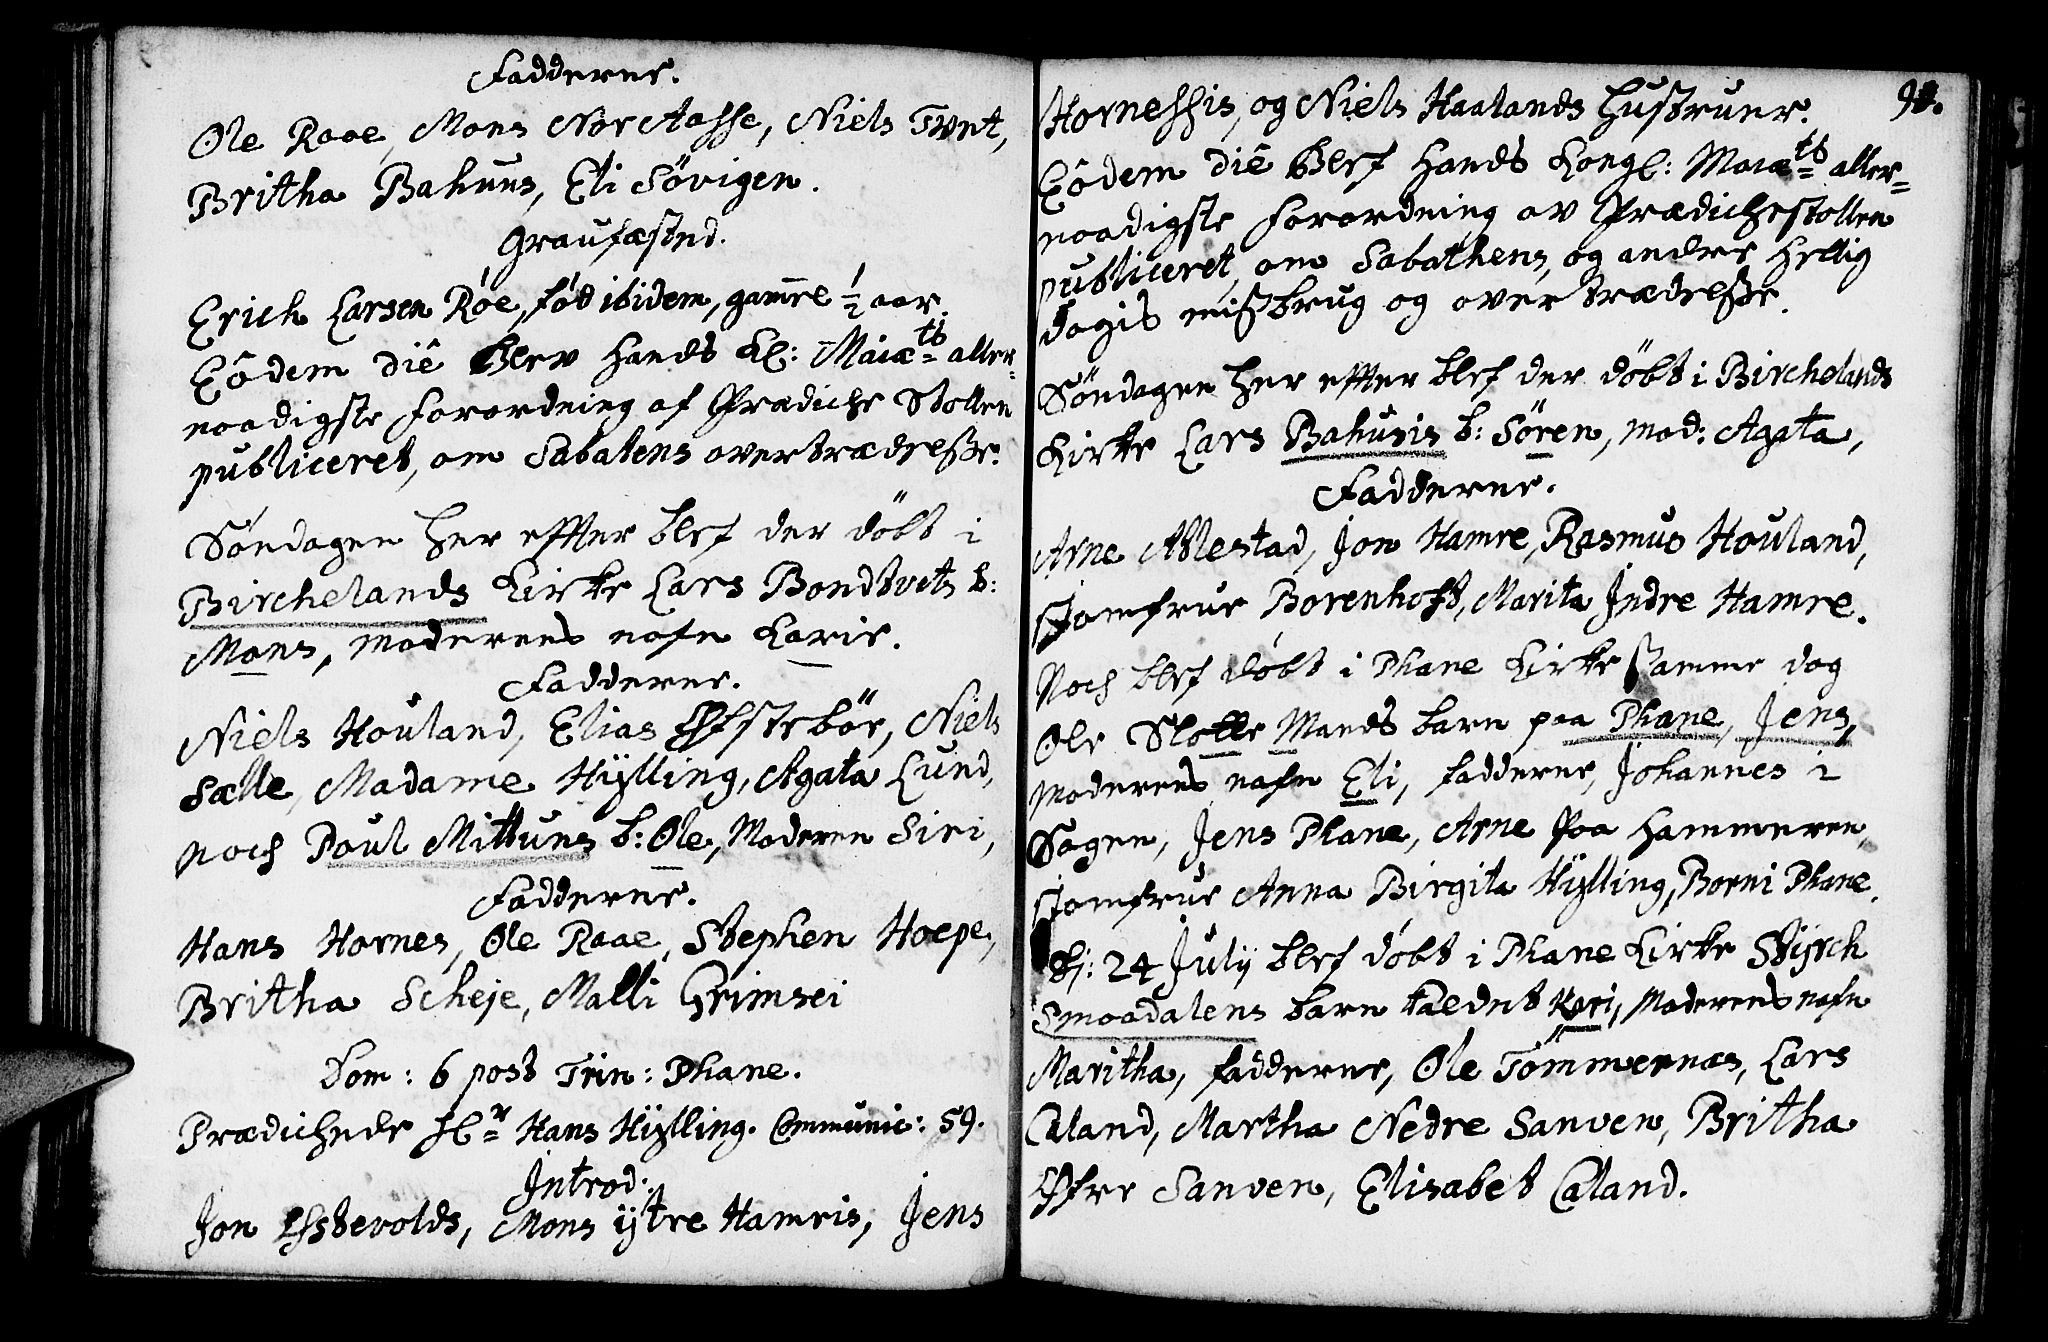 Fadderne.
Ole Raae, Mons Nor Aasse, Niels Tvnt,
Britha Bahuus, Eli Sövigen.
Graufæsted.
Erich Larsen Röe, fød ibidem, gamle ½ aar.
Eôdem die blev hands Kl: Maiæts aller-
naadigste forordning af Prædiche Stollen
publiceret, om Sabatens overtrædelsse.
Söndagen her effter blef der döbt i
Birchelands Kirke Lars Bondtvets b:
Mons, moderens nafn Karie.
Fadderne.
Niels Houland, Elias Öfsteböe, Niels
Sælle, Madame Hÿlling, Agata Lund,
noch Poul Mittuns b: Ole, Moderen Siri,
Fadderne.
Hans Hornes, Ole Raae, Stephen Hope,
Britha Scheje, Malli Grimsei
Dom: 6 post Trin: Phane.
Prædichede Hr Hans Hÿlling. Communic: 59.
Introd:
Jon Essevolds, Mons ÿtre Hamris, Jens
98.
Hornessis, og Niels Haalands Hustruer.
Eôdem diê blef hands Kongl: Maiæts aller-
naadigste forordning av Prædichestollen
publiceret, om Sabathens, og andre hellig
dagis missbrug og overtrædelsse.
Söndagen her effter blef der döbt i Birchelands
Kirke Lars Bahusis b: Sören, mod: Agata,
Fadderne.
Arne Ablestad, Jon Hamre, Rasmus Houland,
Jomfrue Borenhoft, Marita Indre Hamre.
Noch blef döbt i Phane Kirke samme dag
Ole Slotte Mands barn paa Phane, Jens,
moderens nafn Eli, fadderne, Johannes i
Sagen, Jens Phane, Arne paa Hammeren,
Jomfrue Anna Birgita Hÿlling, Borni Phane.
D: 24 Julij blef döbt i Phane Kirke Stÿrch
Smaadalens barn kaldet Kari, Moderens nafn
Maritha, fadderne, Ole Tömmernæs, Lars
Caland, Martha Nedre Sanven, Britha
Öfre Sanven, Elisabet Caland.